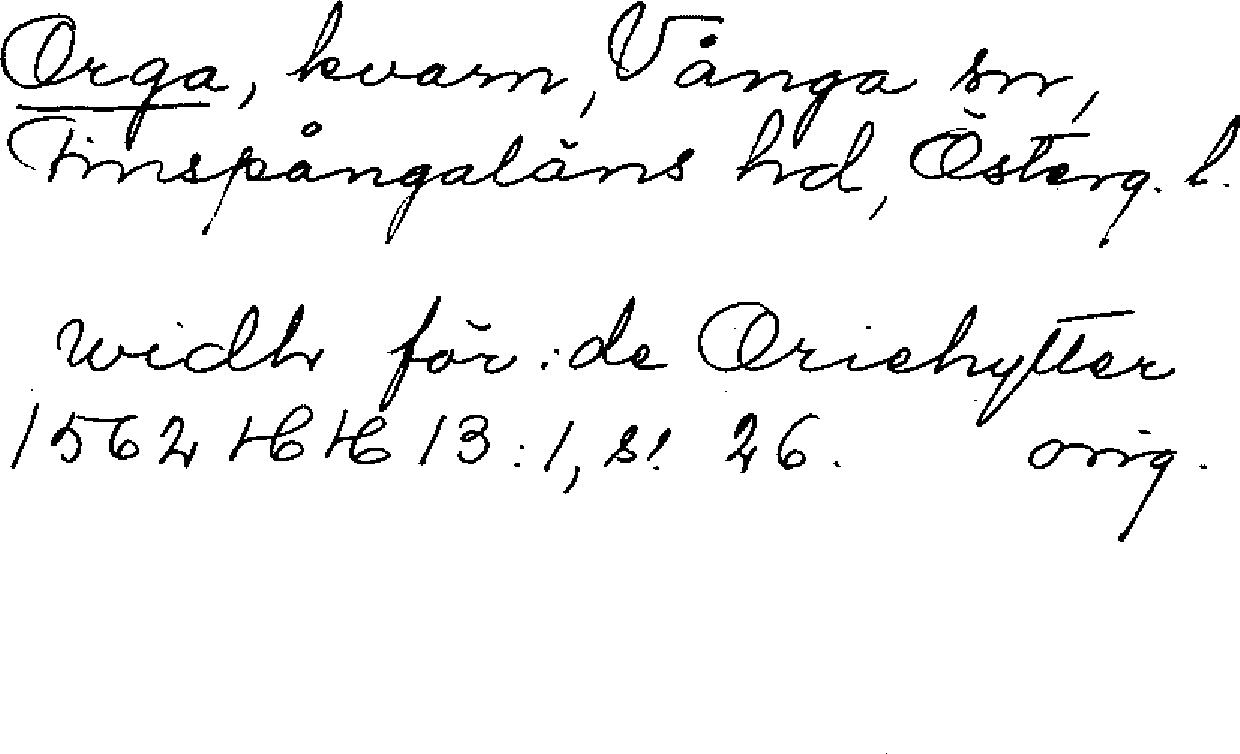 Orga, kvarn, Vånga sn,
Finspångaläns hd, Österg. l.
widh för:de Oriehytter
1562 HH 13:1, s. 26. orig.